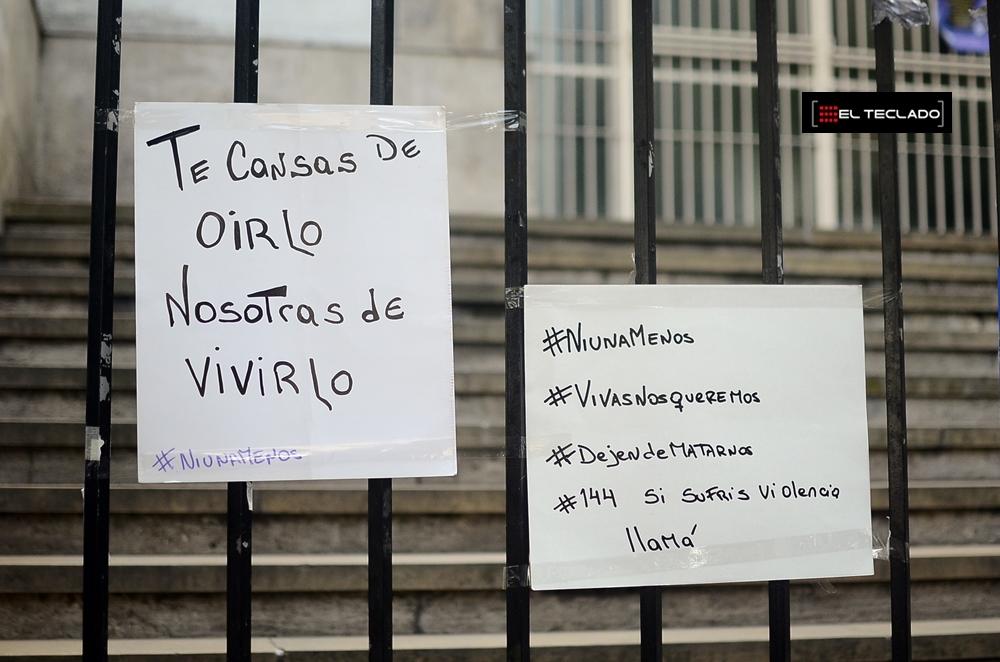 Te Cansas de
oirlo
Nosotras de
vivirlo
#NiunaMenos
#NiunaMenos
#VivasNosQueremos
#DejendeMatarnos
#144 si sufris violencia
llamá
EL TECLADO